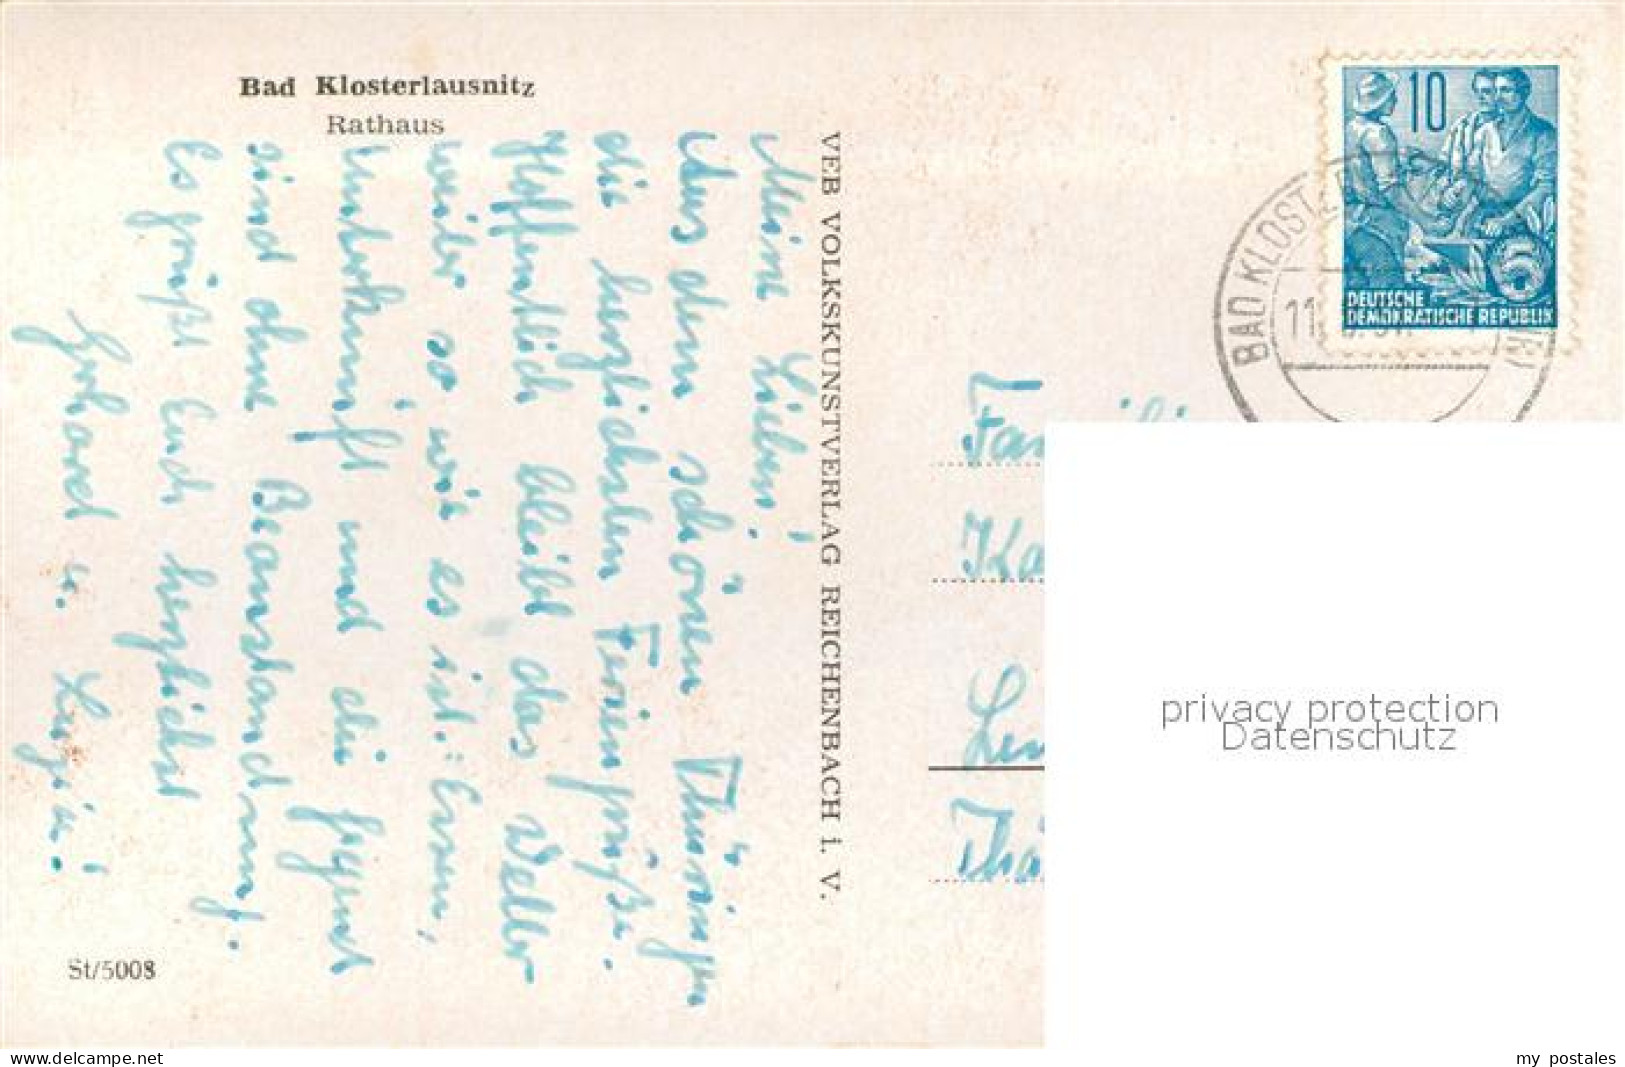 Bad Klosterlausnitz
Rathaus
Meine Lieben!
Aus dem schönen Thüringen
die herzlichsten Feriengrüße.
Hoffentlich bleibt das Wetter
weiter so wie es ist. Essen,
Unterkunft und die Jugend
sind ohne Beanstandung.
Es grüßt Euch herzlichst
Gerhard u.
St/5008
VEB VOLKSKUNSTVERLAG REICHENBACH i. V.
10
DEUTSCHE
DEMOKRATISCHE REPUBLIK
BAD KLOST
11
Fam
Ka
Thü
privacy protection
Datenschutz
www.delcampe.net
my postales